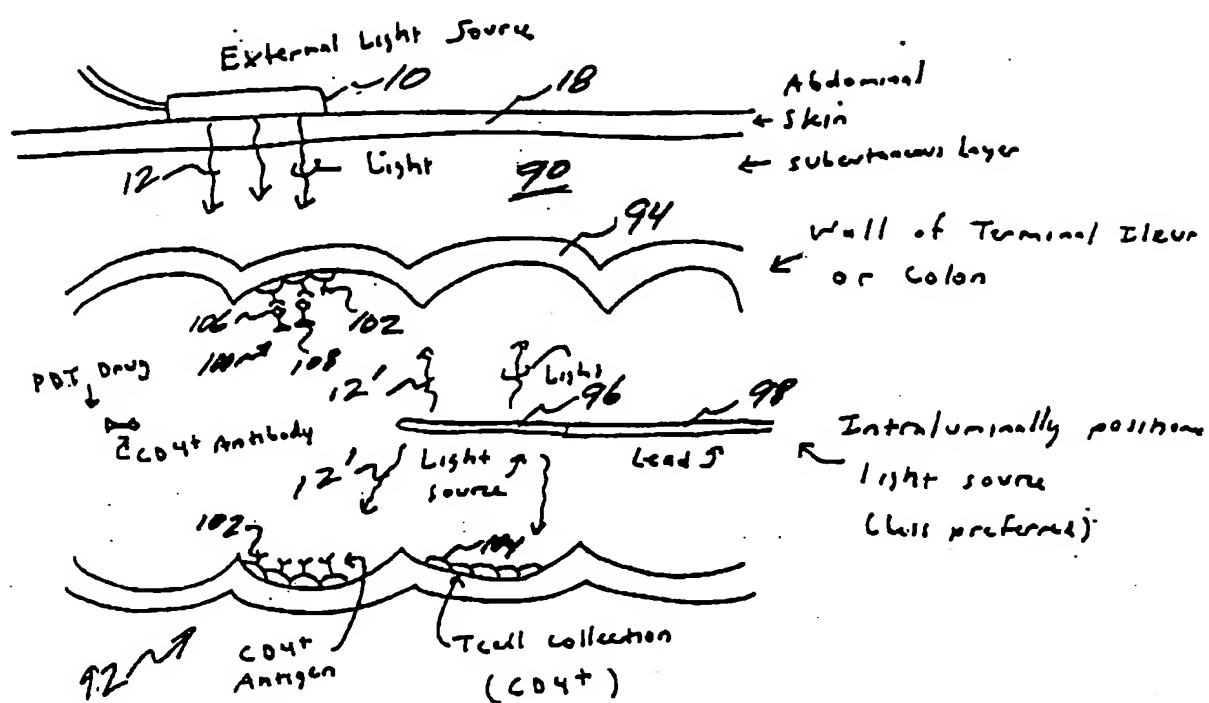 External Light Source
10
18
Abdominal
Skin
Subcutaneous Layer
12
Light
90
94
Wall of Terminal Ileum
or Colon
106
102
108
PDT Drug
12'
Light
96
98
CD4+ Antibody
12'
Light
source
Lead
Intraluminally positione
light source
(less preferred)
102
104
CD4+
Antigen
Tcell collection
(CD4+)
92